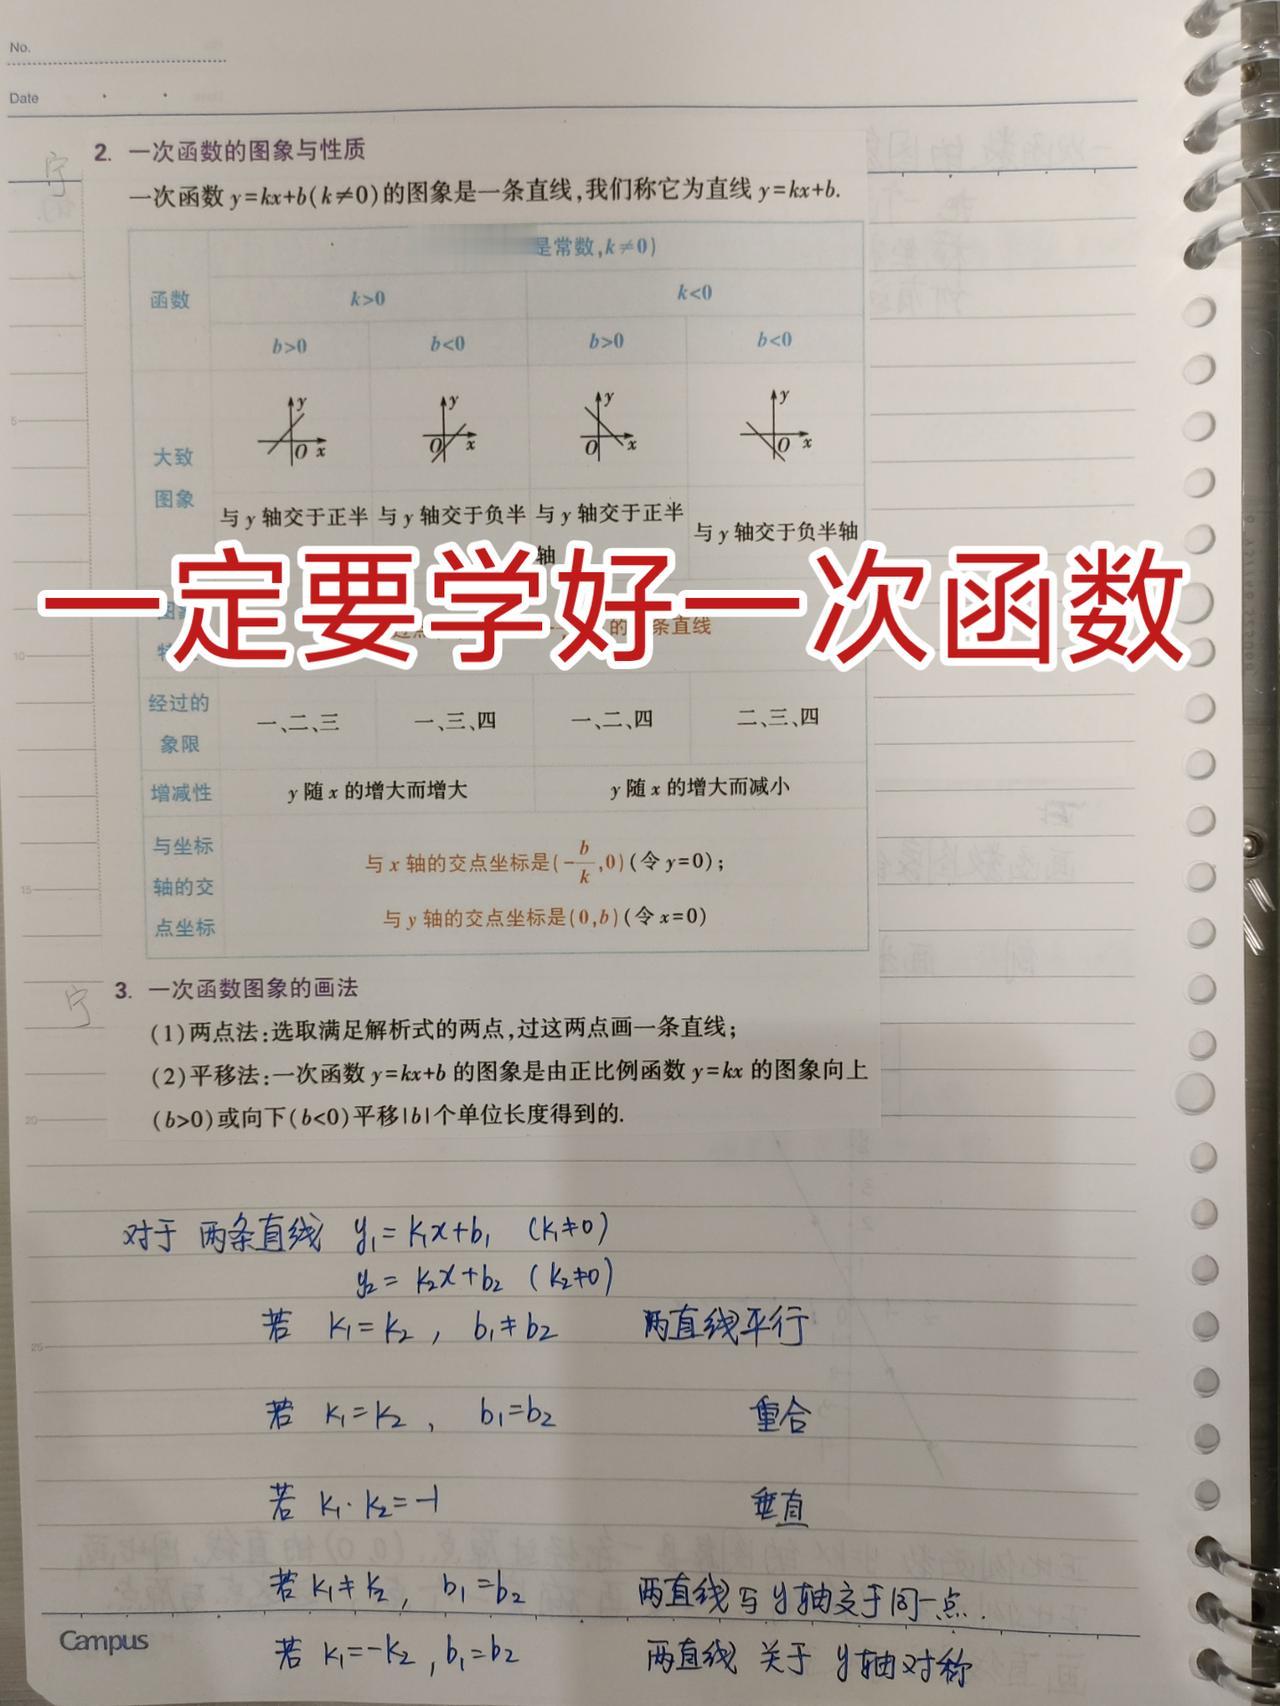 No.
Date
宁
2. 一次函数的图象与性质
一次函数 y=kx+b(k≠0)的图象是一条直线,我们称它为直线 y=kx+b.
函数
是常数,k≠0)
k>0
k<0
b>0
b<0
b>0
b<0
大致
图象
y
O
x
y
O
x
y
O
x
y
O
x
与 y 轴交于正半
与 y 轴交于负半
与 y 轴交于正半
轴
与 y 轴交于负半轴
一定要学好一次函数
的
条直线
经过的
象限
一、二、三
一、三、四
一、二、四
二、三、四
增减性
y 随 x 的增大而增大
y 随 x 的增大而减小
与坐标
轴的交
点坐标
与 x 轴的交点坐标是(-b/k,0)(令 y=0);
与 y 轴的交点坐标是(0,b)(令 x=0)
宁
3. 一次函数图象的画法
(1)两点法:选取满足解析式的两点,过这两点画一条直线;
(2)平移法:一次函数 y=kx+b 的图象是由正比例函数 y=kx 的图象向上
(b>0)或向下(b<0)平移|b|个单位长度得到的.
对于 两条直线 y₁=k₁x+b₁ (k₁≠0)
y₂=k₂x+b₂ (k₂≠0)
若 k₁=k₂, b₁≠b₂ 两直线平行
若 k₁=k₂, b₁=b₂ 重合
若 k₁·k₂=-1 垂直
若 k₁≠k₂, b₁=b₂ 两直线与 y轴交于同一点.
若 k₁=-k₂, b₁=b₂ 两直线 关于 y轴对称
Campus
5
10
15
20
25